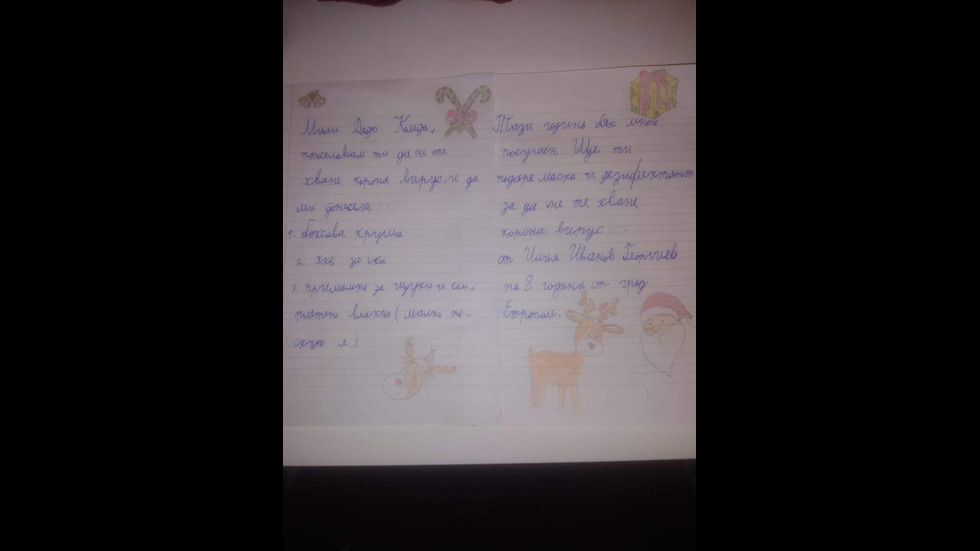 Мили Дядо Коледа,
пожелавам ти да не те
хване корона вирус и да
ми донесеш:
1. боксова круша
2. яке за ски
3. примамка за щуки и сом,
плетено влакно (малко по-
скъпо е)
Тази година бях много
послушен. Ще ти
подаря маска и дезифектант
за да не те хване
корона випус.
от Илия Иванов Георгиев
на 8 години от град
Етрополе.